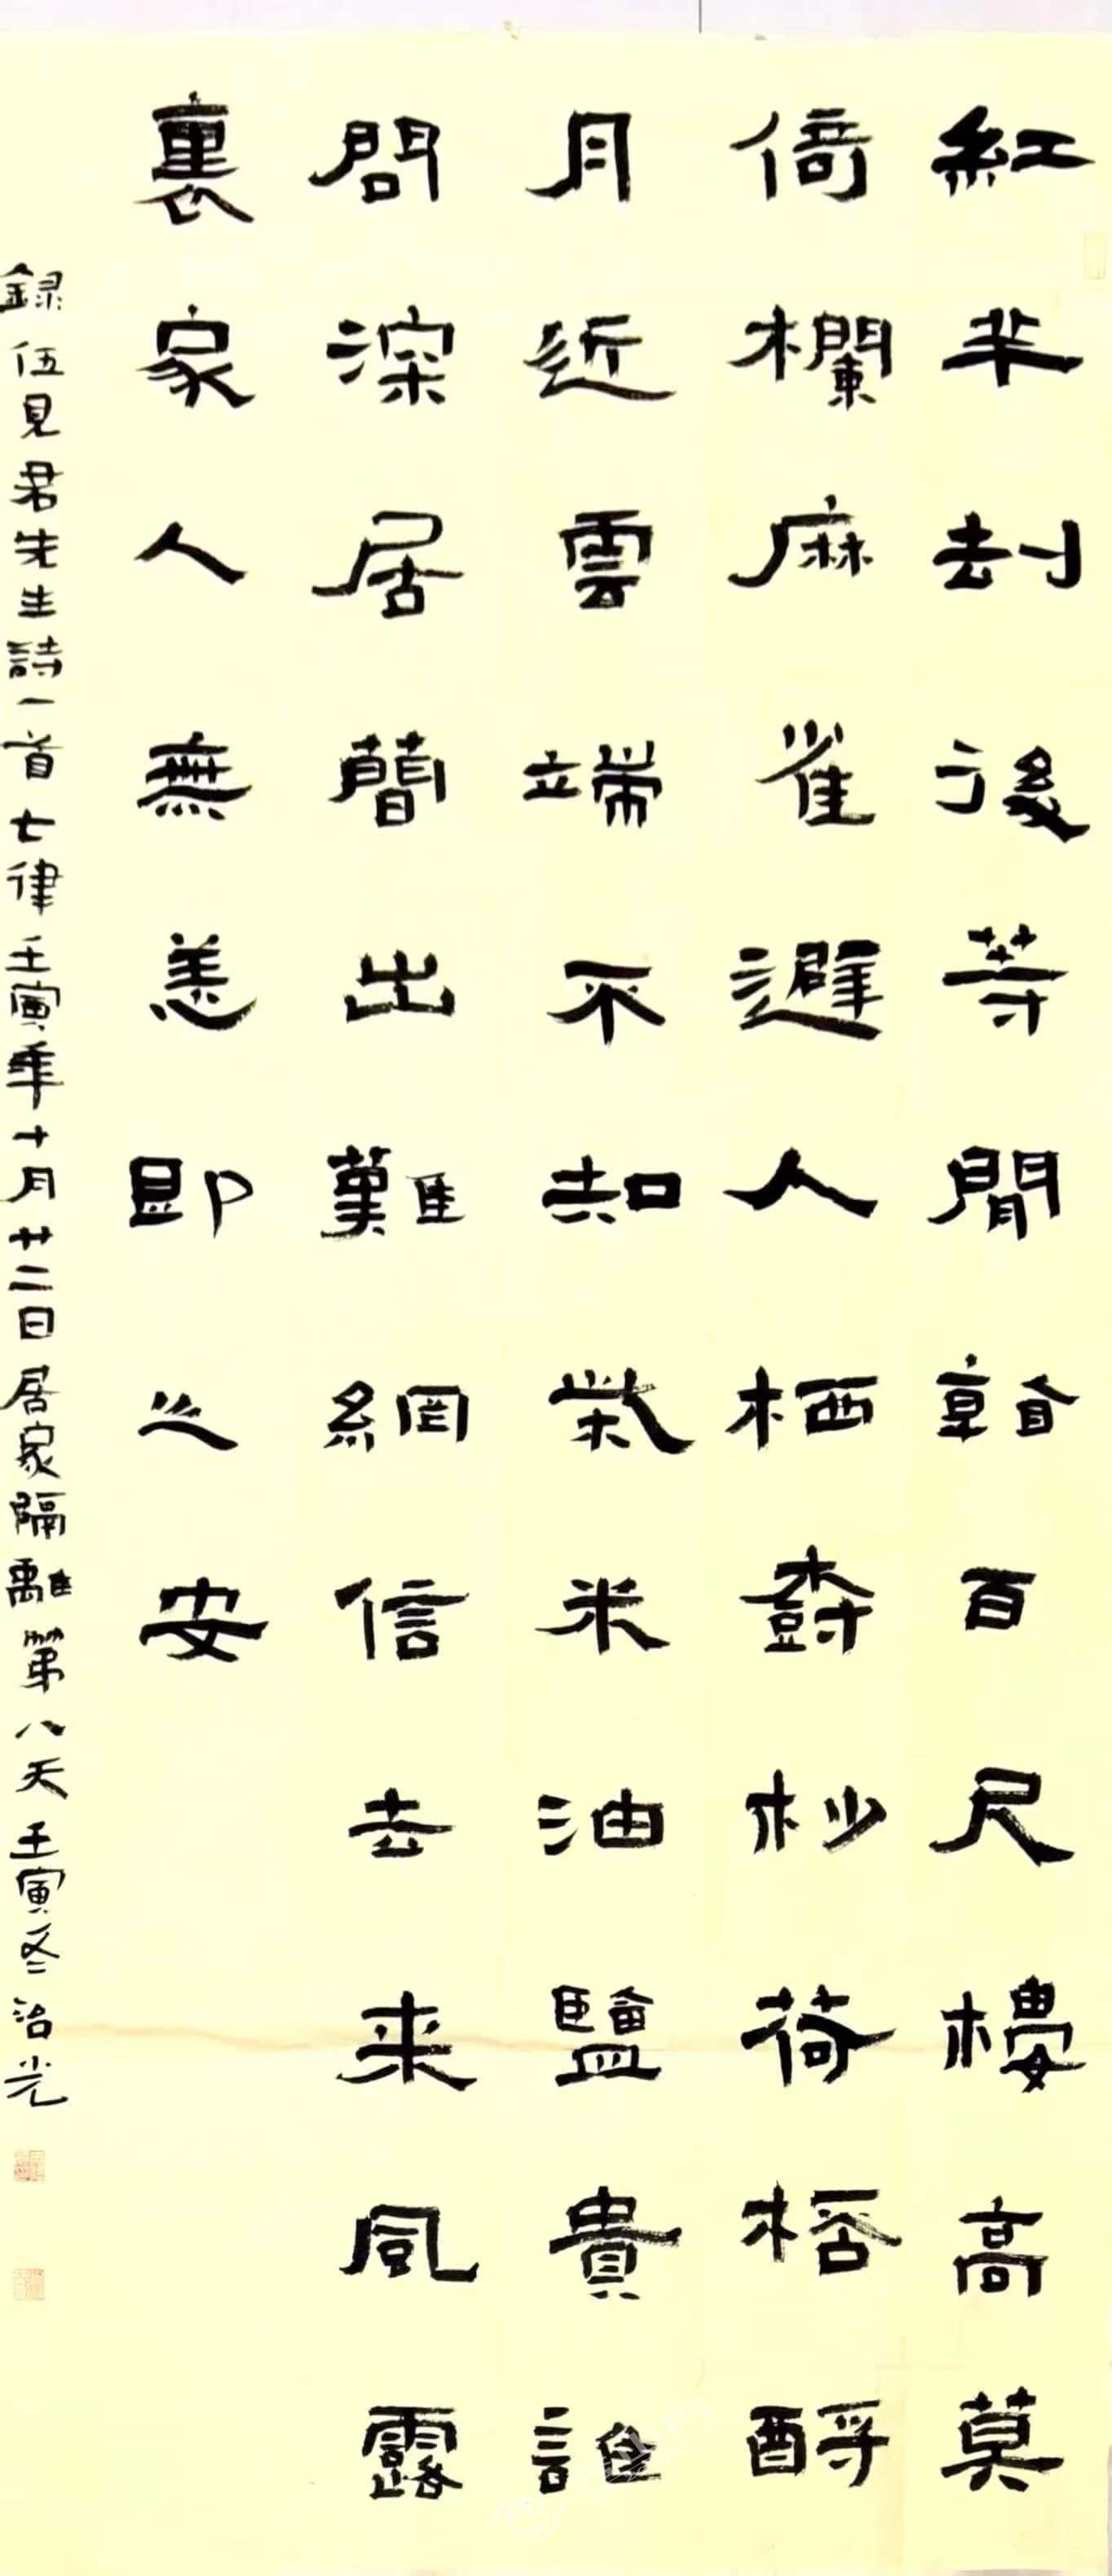 紅羊刦後等閒看百尺樓高莫
倚欄麻雀避人栖樹杪荷桮酹
月近雲端不知柴米油鹽貴誰
問深居簡出難網信去来風露
裏家人無恙即心安
録伍見君先生詩一首七律壬寅年十月廿二日居家隔離第八天壬寅冬治光